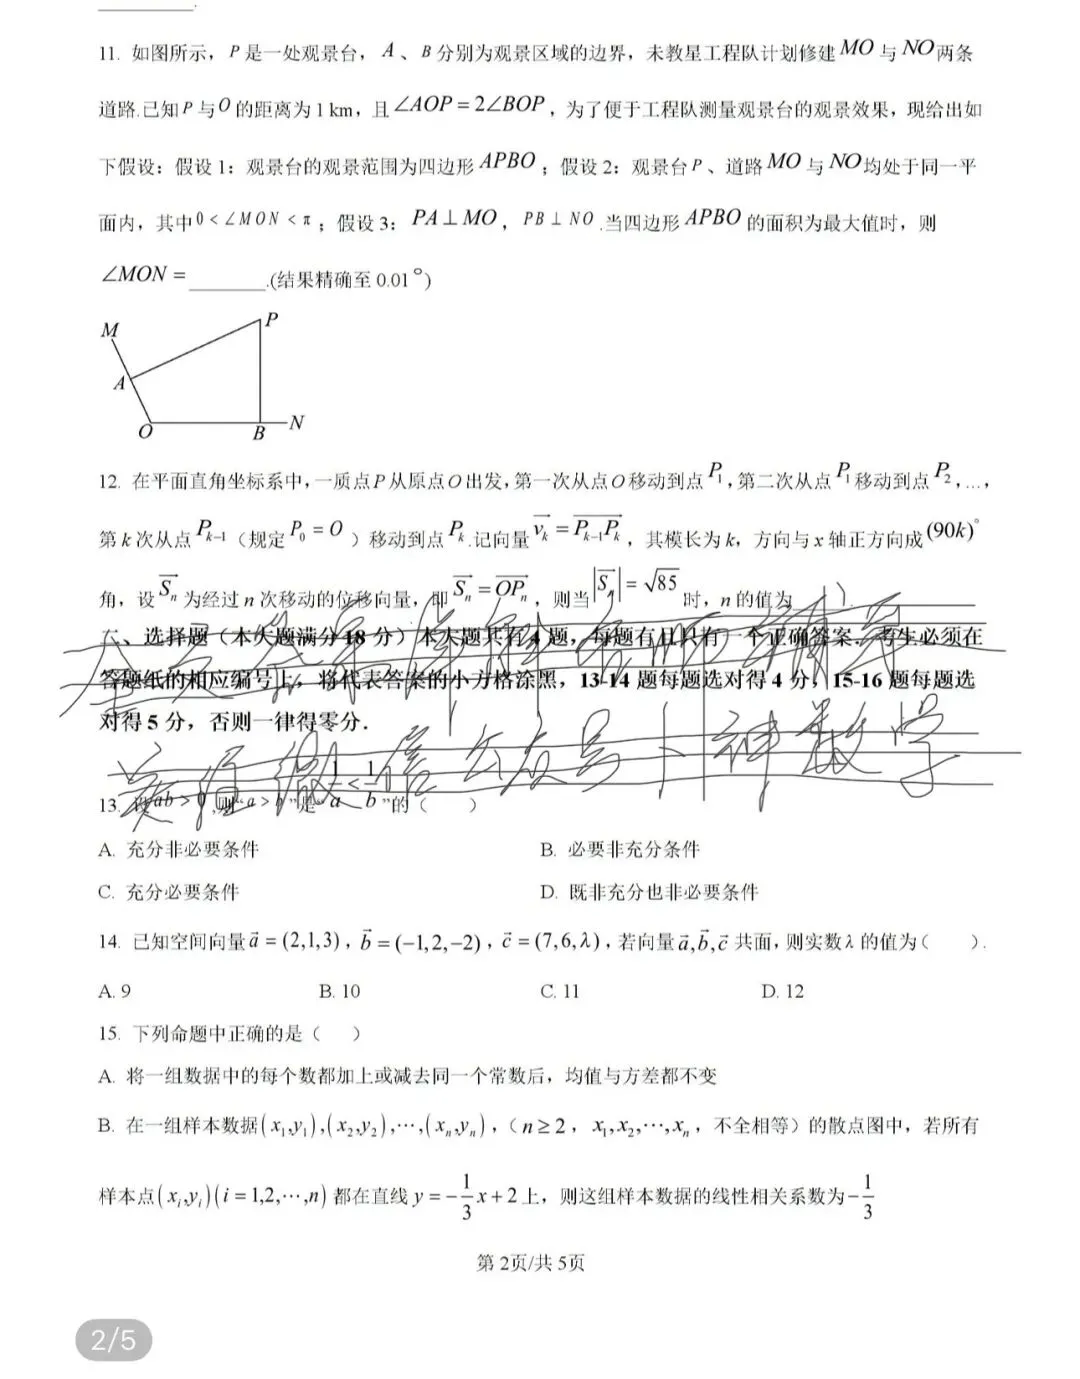 11. 如图所示，P是一处观景台，A、B分别为观景区域的边界，未教星工程队计划修建MO与NO两条
道路.已知P与O的距离为1 km，且∠AOP=2∠BOP，为了便于工程队测量观景台的观景效果，现给出如
下假设：假设1：观景台的观景范围为四边形APBO；假设2：观景台P、道路MO与NO均处于同一平
面内，其中0<∠MON<π；假设3：PA⊥MO，PB⊥NO.当四边形APBO的面积为最大值时，则
∠MON=________.(结果精确至0.01°)
M
P
A
O
B
N
12. 在平面直角坐标系中,一质点P从原点O出发,第一次从点O移动到点P₁,第二次从点P₁移动到点P₂,…,
第k次从点Pₖ₋₁（规定P₀=O）移动到点Pₖ.记向量vₖ→=Pₖ₋₁Pₖ→，其模长为k，方向与x轴正方向成(90k)°
角，设Sₙ→为经过n次移动的位移向量，即Sₙ→=OPₙ→，则当|Sₙ→|=√85时，n的值为
二、选择题（本大题满分18分）本大题共有4题，每题有且只有一个正确答案.考生必须在
答题纸的相应编号上，将代表答案的小方格涂黑，13-14题每题选对得4分，15-16题每题选
对得5分，否则一律得零分．
微信公众号 神数学
13. 设ab>0,则“a>b”是“1/a<1/b”的（ ）
A. 充分非必要条件 B. 必要非充分条件
C. 充分必要条件 D. 既非充分也非必要条件
14. 已知空间向量a→=(2,1,3)，b→=(−1,2,−2)，c→=(7,6,λ)，若向量a→,b→,c→共面，则实数λ的值为（ ）.
A. 9 B. 10 C. 11 D. 12
15. 下列命题中正确的是（ ）
A. 将一组数据中的每个数都加上或减去同一个常数后，均值与方差都不变
B. 在一组样本数据(x₁,y₁),(x₂,y₂),⋯,(xₙ,yₙ)，（n≥2，x₁,x₂,⋯,xₙ，不全相等）的散点图中，若所有
样本点(xᵢ,yᵢ)(i=1,2,⋯,n)都在直线y=−1/3x+2上，则这组样本数据的线性相关系数为−1/3
第2页/共5页
2/5